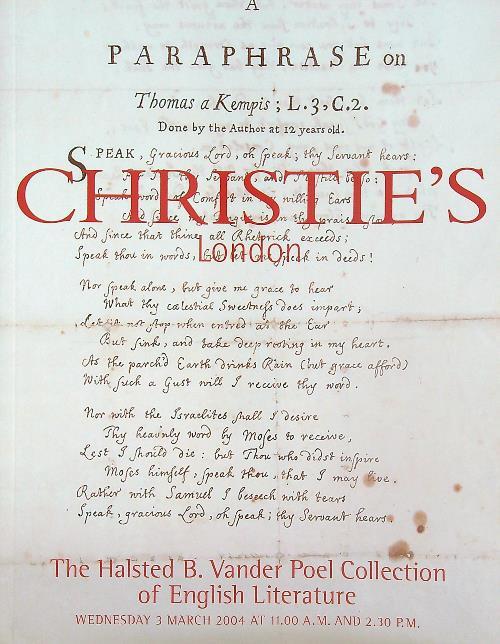 A
PARAPHRASE on
Thomas a Kempis; L.3, C.2.
Done by the Author at 12 years old.
SPEAK, Gracious Lord, oh speak; thy Servant hears:
For I'm thy Servant, and I'll still be so:
Speak words of Comfort in my willing Ears
And since my Tongue is in thy praises slow
And since that thine all Rhetorick exceeds;
Speak thou in words, but let me speak in deeds!
CHRISTIE'S
London
Nor speak alone, but give me grace to hear
What thy cælestial Sweetness does impart;
Let it not stop when entred at the Ear
But sink, and take deep rooting in my heart.
As the parch'd Earth drinks Rain (but grace afford)
With such a Gust will I receive thy word.
Nor with the Israelites shall I desire
Thy heavnly word by Moses to receive,
Lest I should die: but Thou who didst inspire
Moses himself, speak thou, that I may live.
Rather with Samuel I beseech with tears
Speak, gracious Lord, oh speak; thy Servant hears.
The Halsted B. Vander Poel Collection
of English Literature
WEDNESDAY 3 MARCH 2004 AT 11.00 A.M. AND 2.30 P.M.